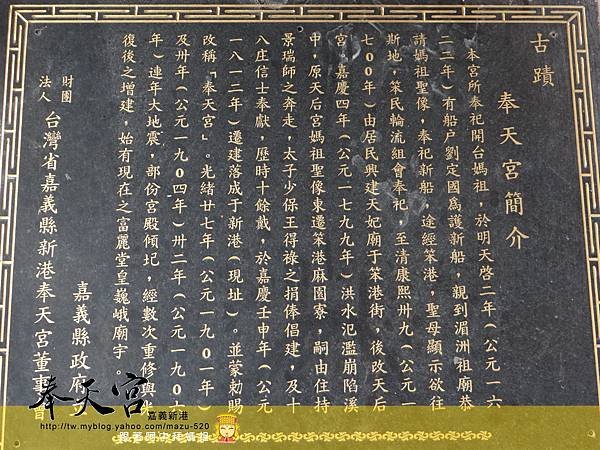 古蹟
奉天宮簡介
本宮所奉祀開台媽祖，於明天啓二年（公元一六
二二年）有船户劉定國為護新船，親到湄洲祖廟恭
請媽祖聖像，奉祀新船，途經笨港，聖母顯示欲往
斯地，笨民輪流組會奉祀，至清康熙卅九（公元一
七00年）由居民興建天妃廟于笨港街，後改天后
宮，嘉慶四年（公元一七九九年）洪水氾濫崩陷溪
中，原天后宮媽祖聖像東遷笨港麻園寮，嗣由住持
景瑞師之奔走，太子少保王得祿之捐俸倡建，及十
八庄信士奉獻，歷時十餘戴，於嘉慶壬申年（公元
一八一二年）遷建落成于新港（現址）。並蒙勅賜
改稱「奉天宮」。光緒廿七年（公元一九0一年）
及卅年（公元一九0四年）卅二年（公元一九0六
年）連年大地震，部份宮殿傾圮，經數次重修與
復後之增建，始有現在之富麗堂皇巍峨廟宇。
嘉義縣政府
財團法人台灣省嘉義縣新港奉天宮董事會
奉天宮
嘉義新港
http://tw.myblog.yahoo.com/mazu-520